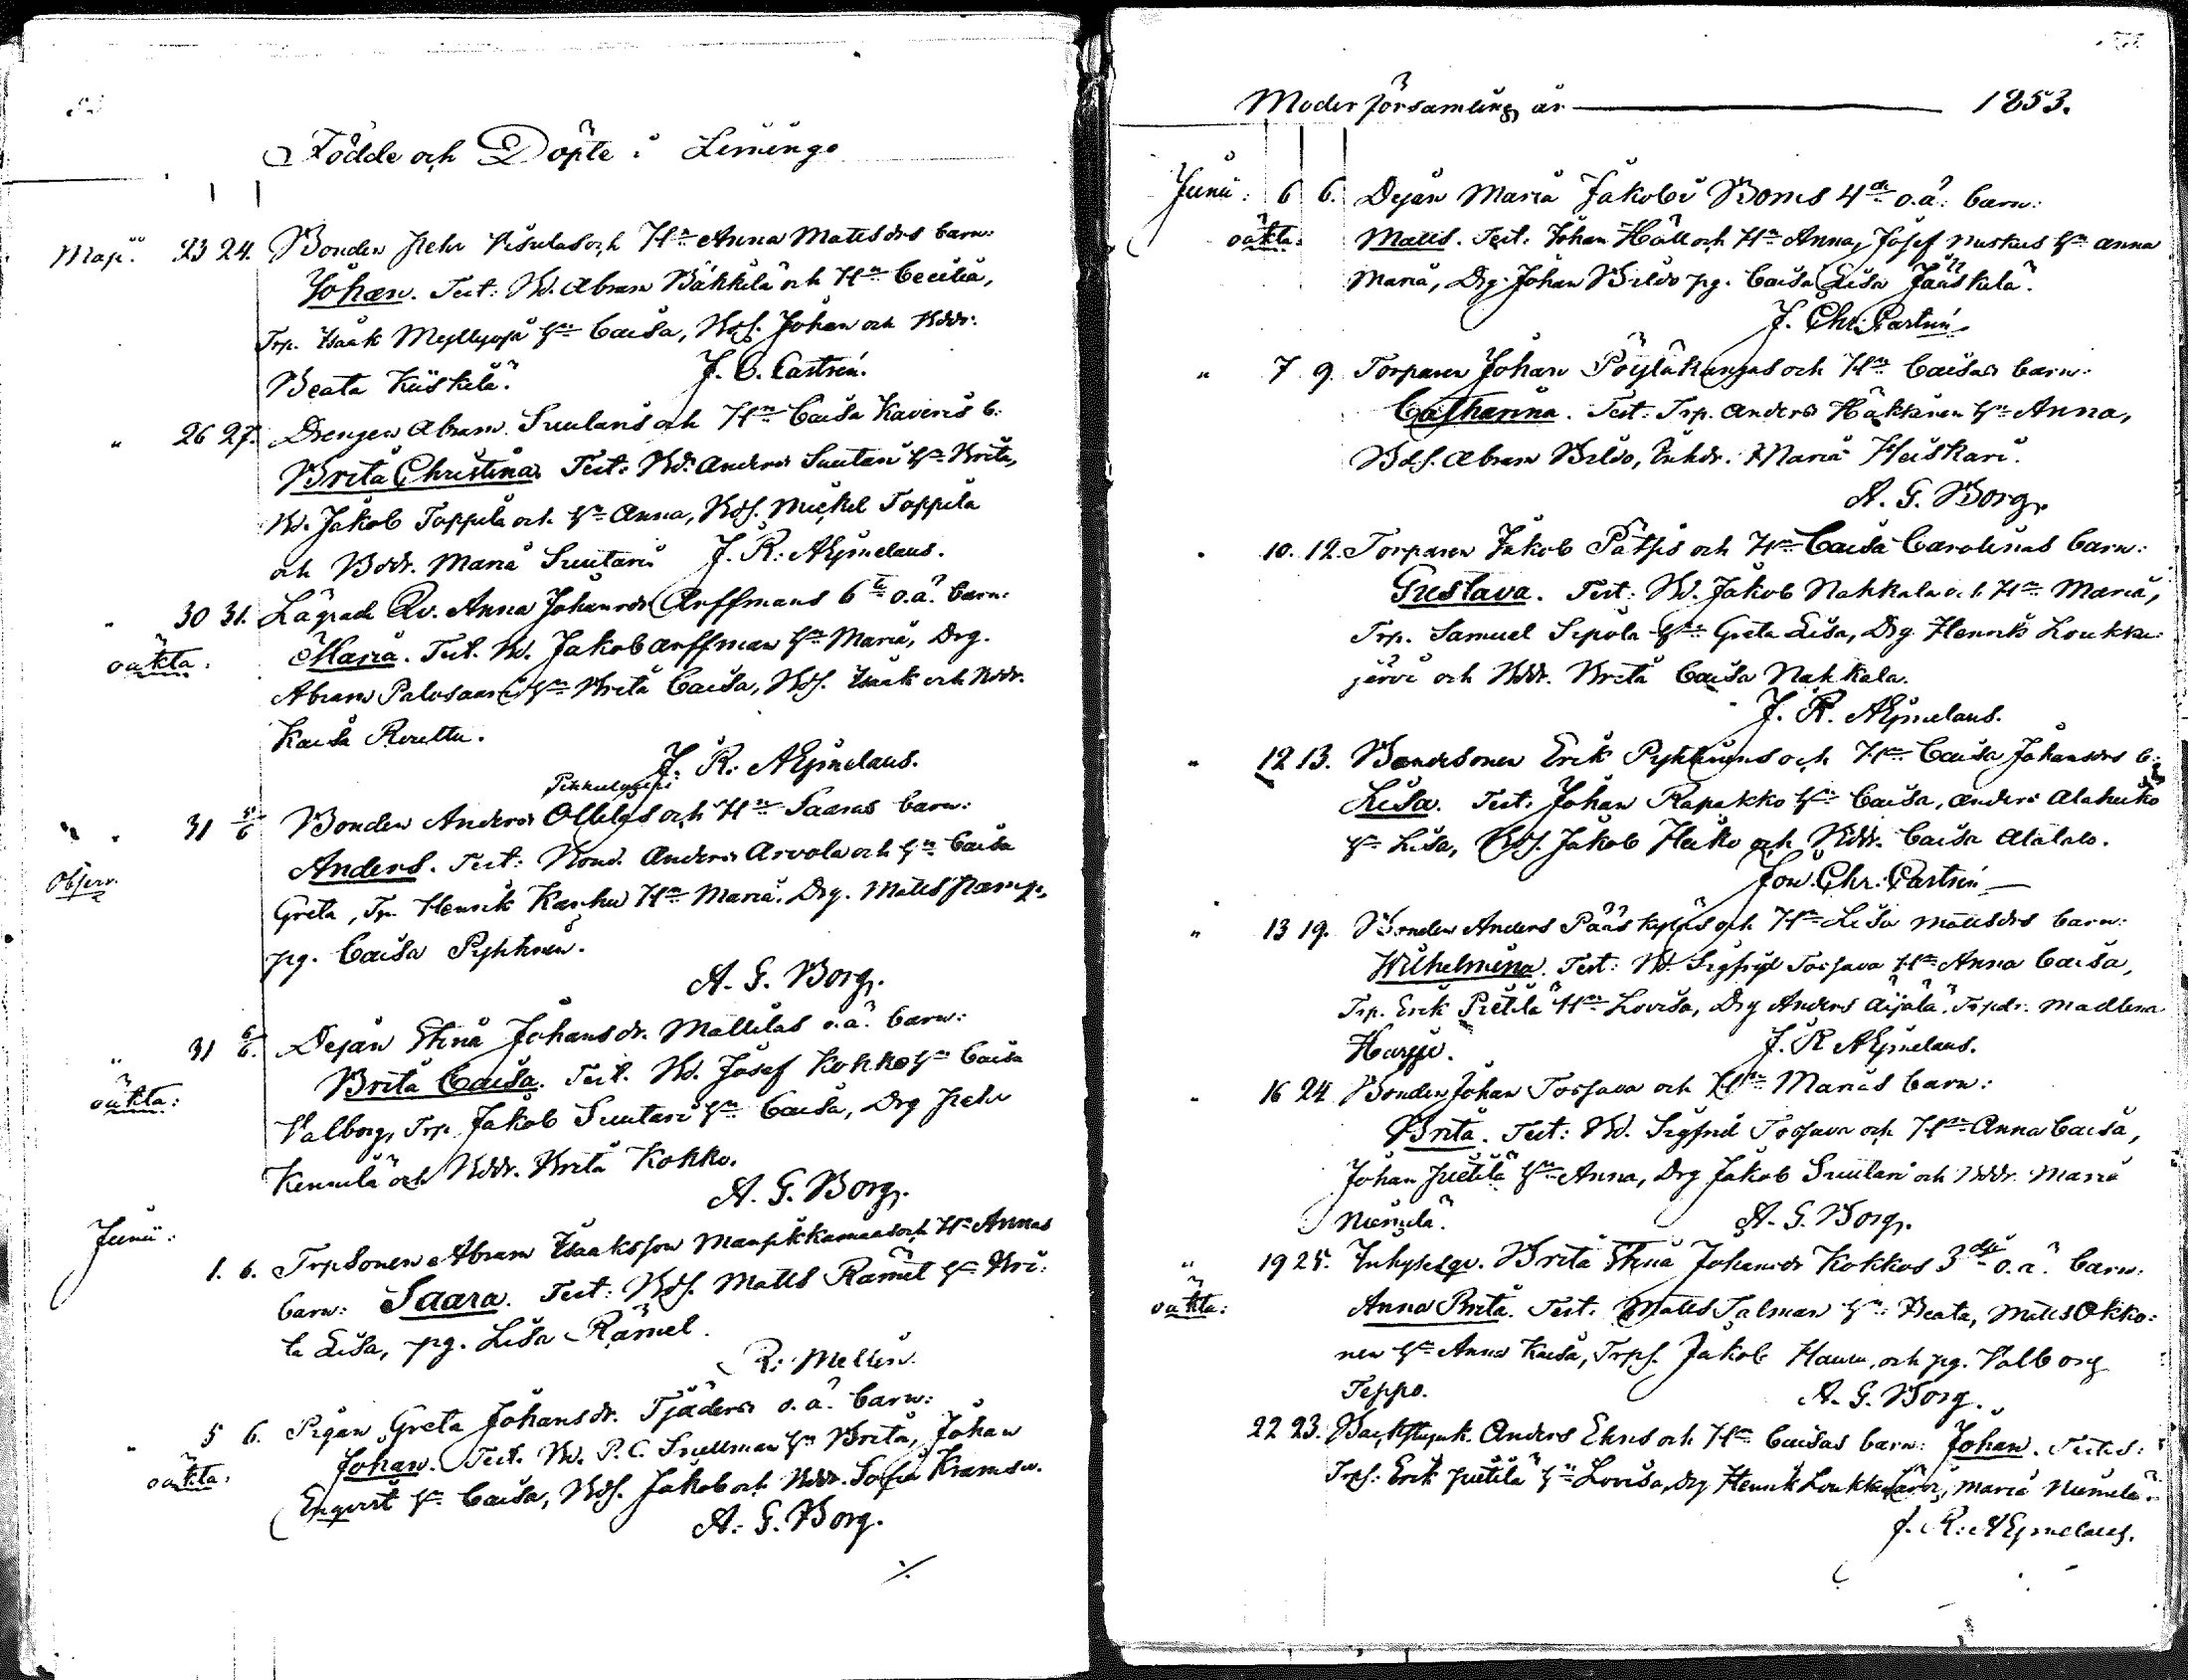 Födde och Döpte i Limingo
Maji: 23 24. Bonden Pehr och H:n Anna Mattsdrs barn:
Johan. Test: Bd. Abram Väkkilä och H:n Cecilia,
Trp. Isaak Myllyoja h:n Caisa, Bds. Johan och Bddr.
Beata Kiiskilä. J. C. Castrén.
" 26 27. Drengen Abram Suutaris och H:n Caisa Kaveris b:
Brita Christina. Test: Bd. Anders Suutari h:n Brita,
Bd. Jakob Toppila och h:n Anna, Bds. Mickel Toppila
och Bddr. Maria Suutari J. R: Aejmelaus.
" 30 31. Lägrad Qv. Anna Johansdr Arffmans 6te o.ä. barn:
oäkta: Maria. Test. Bd. Jakob Arffman h:n Maria, Drg.
Abram Palosaari h:n Brita Caisa, Bds. Isaak och Bddr.
Kaisa Routtu.
J. R: Aejmelaus.
" 31 5/6 Bonden Anders Ollilas och H:n Saaras barn:
Anders. Test: Bond. Anders Arvola och h:n Caisa
Observ.
Greta, Tp. Henrik Karhu H:n Maria. Drg. Matts
pg. Caisa Pyhtinen.
A. G. Borg.
" 31 6/6. Dejan Stina Johansdr. Mattilas o.ä. barn:
oäkta: Brita Caisa. Test. Bd. Josef Kokko h:n Caisa
Valborg, Trp. Jakob Suutari h:n Caisa, Drg Pehr
och Bddr. Brita Kokko.
A. G. Borg.
Junii: 1. 6. Trpsonen Abram Isaaksson och H:n Annas
barn: Saara. Test: Bds. Matts Rämet h:n Bri:
ta Lisa, pg. Lisa Rämet.
R: Mellin.
" 5 6. Pigan Greta Johansdr. Tjäders o.ä. barn:
oäkta: Johan. Test. Bd. P. C. Snellman h:n Brita, Johan
Enqvist h:n Caisa, Bds. Jakob och Bddr. Sofia Kramsu.
A. G. Borg.
Moderförsamling år 1853.
Junii: 6 6. Dejan Maria Jakobs 4de o.ä. barn:
oäkta: Matts. Test: Johan Häll och H:n Anna, Josef Muskus h:n Anna
Maria, Drg. Johan pg. Caisa Lisa Jääskelä.
J. Chr: Castrén
" 7 9. Torparen Johan Pöyläkangas och H:n Caisas barn:
Catharina. Test: Trp. Anders Häkkinen h:n Anna,
Bds. Abram Inhdr. Maria Heiskari.
A. G. Borg.
" 10. 12. Torparen Jakob och H:n Caisa Carolinas barn:
Gustava. Test: Bd. Jakob Nahkala och H:n Maria,
Trp. Samuel Sipola h:n Greta Lisa, Drg. Henrik Loukka:
järvi och Bddr. Brita Caisa Nahkala.
J. R. Aejmelaus.
" 12 13. Bondesonen Erik Pyhtinens och H:n Caisa Johansdrs b:
Lisa. Test: Johan Rapakko h:n Caisa, Anders Alaheiko
h:n Lisa, Bds. Jakob Heiko och Bddr. Caisa Alatalo.
Jon. Chr. Castrén
" 13 19. Bonden Anders Pääskyläs och H:n Lisa Mattsdrs barn:
Wilhelmina. Test: Bd. Sigfrid Tossava H:n Anna Caisa,
Trp. Erik Pietilä H:n Lovisa, Drg Anders Äijälä, Trpdr. Madlena
Harju. J. R Aejmelaus.
" 16 24 Bonden Johan Tossava och H:n Marias barn:
Brita. Test: Bd. Sigfrid Tossava och H:n Anna Caisa,
Johan Pietilä h:n Anna, Drg Jakob Suutari och Bddr. Maria
Niemelä. A. G. Borg.
" 19 25. Inhyseqv. Brita Stina Johansdr Kokkos 3dje o.ä. barn:
oäkta: Anna Brita. Test. Matts Talman h:n Beata, Matts Okko:
nen h:n Anna Kaisa, Trps. Jakob och pg. Valborg
Teppo. A. G. Borg.
22 23. Anders och H:n Caisas barn: Johan. Testes:
Trp: Erik Pietilä h:n Lovisa, Drg Henrik Loukkajärvi, Maria Niemelä.
J. R: Aejmelaus.